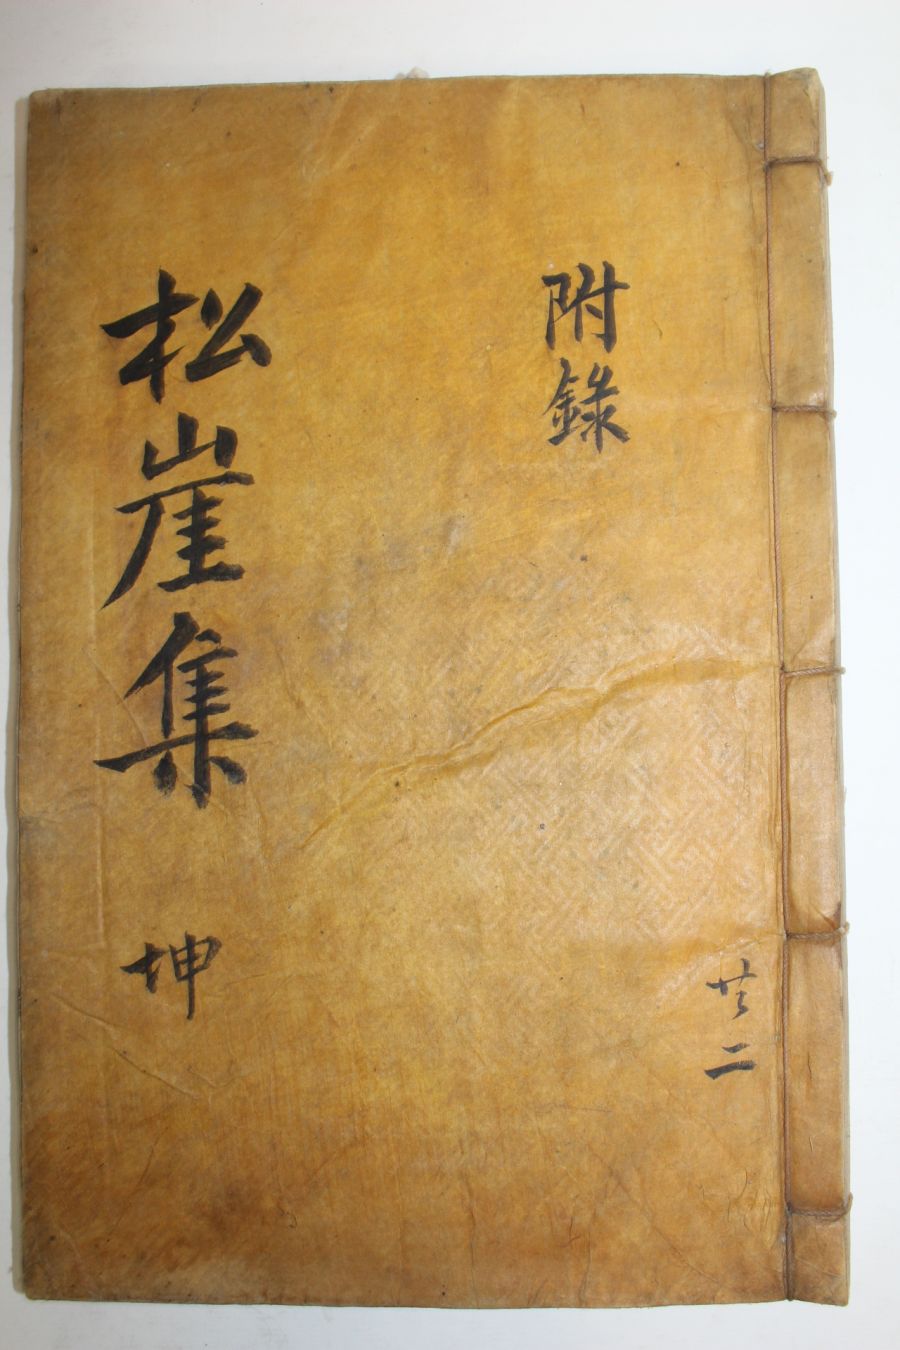 共二
附錄
松崖集 坤